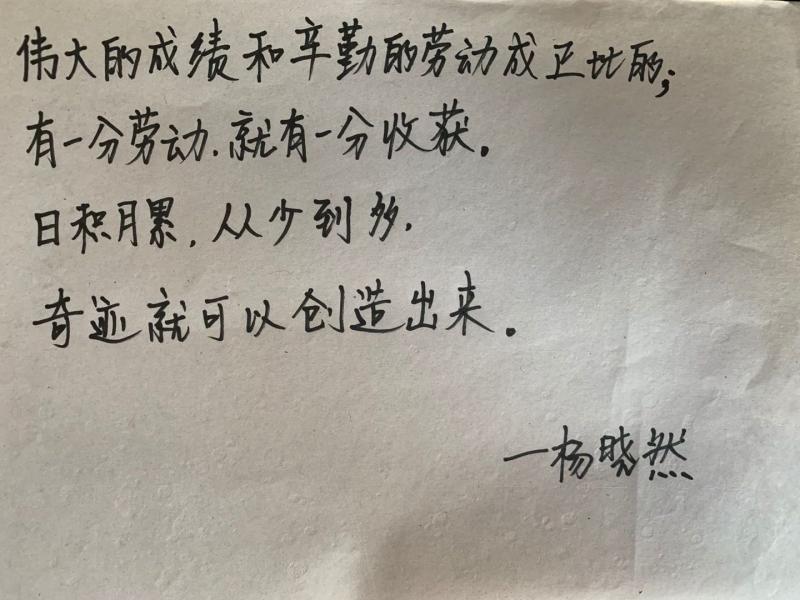 伟大的成绩和辛勤的劳动成正比的;
有一分劳动.就有一分收获。
日积月累,从少到多.
奇迹就可以创造出来。
—杨晓然